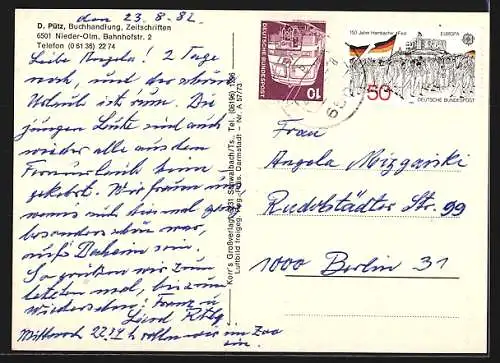 den 23.8.82
D. Pütz, Buchhandlung, Zeitschriften
6501 Nieder-Olm, Bahnhofstr. 2
Telefon (0 61 36) 22 74
Liebe Angela! 2 Tage
noch, und der schöne
Urlaub ist rum. Die
jungen Leute sind auch
wieder alle aus dem
Fernurlaub heim
gekehrt. Wir freuen uns
wenn's auch hier mal ganz
besonders schön war,
aufs Daheim sein.
So grüßen wir zum
letzten mal, bis zum
Wiedersehen! Franz u.
Mittwoch wir im Zoo
ein
Korr's Großverlag, 6231 Schwalbach/Ts., Tel. (06196) 1396
Luftbild freigeg. Reg. Präs. Darmstadt - Nr. A 57/73
DEUTSCHE BUNDESPOST
10
150 Jahre Hambacher Fest
EUROPA
50
DEUTSCHE BUNDESPOST
Frau
Angela Mizgaiski
Rudolstädter Str. 99
1000 Berlin 31